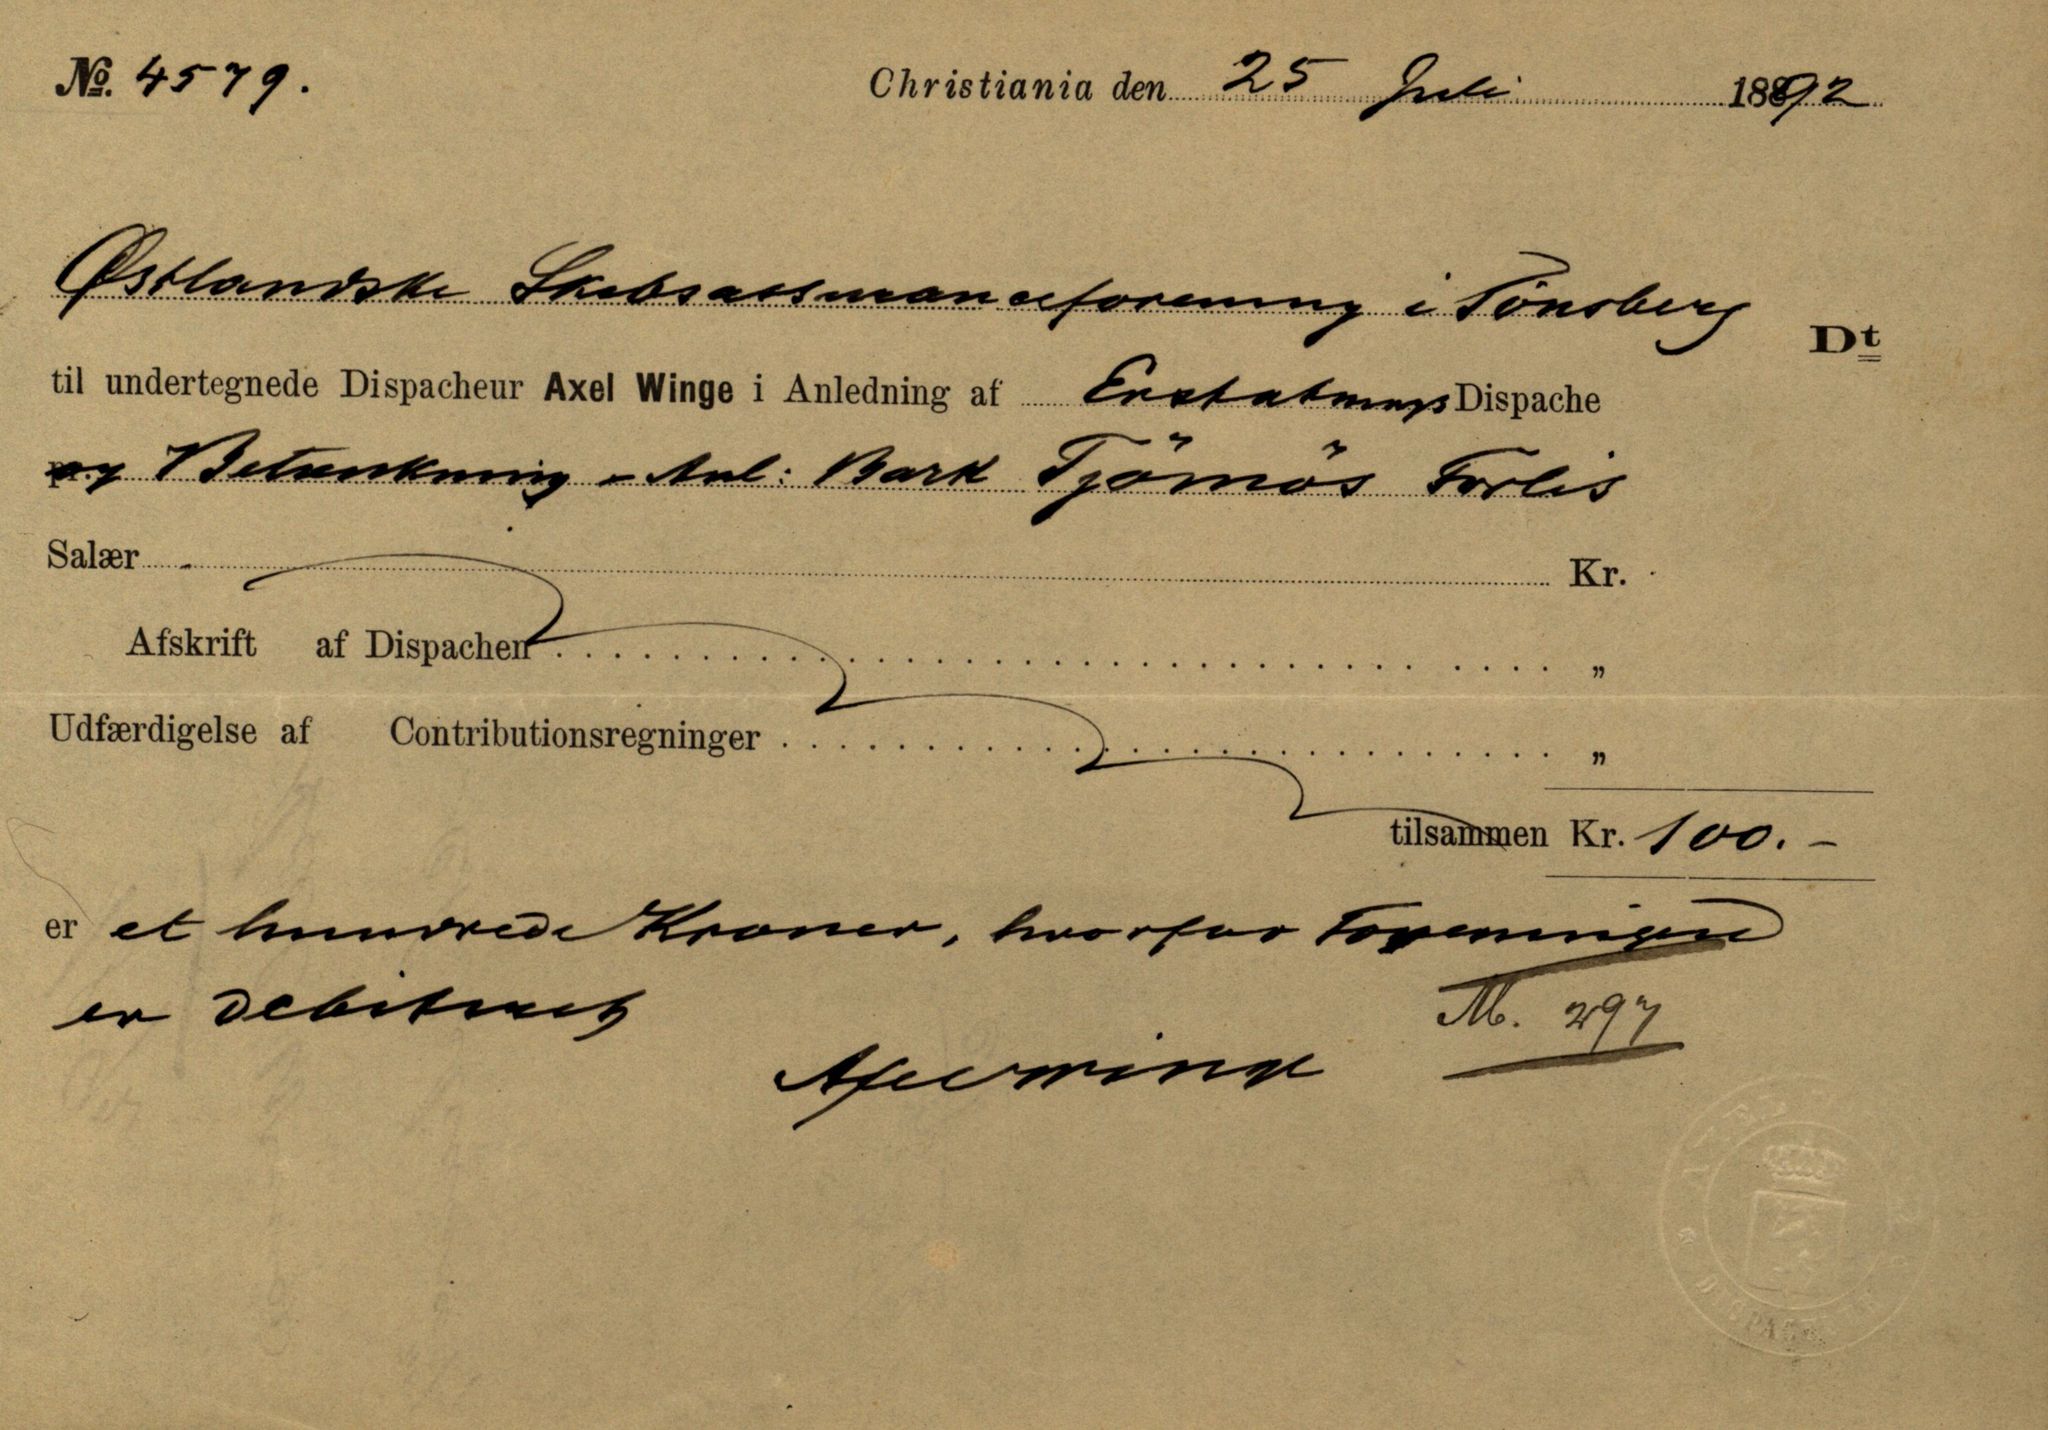 No. 4579.
Christiania den 25 Juli 1892
Østlandske Skibsassuranceforening i Tönsberg
Dt
til undertegnede Dispacheur Axel Winge i Anledning af Erstatnings Dispache
og Betænkning i Anl: Bark Tjömös Forlis
Salær Kr.
Afskrift af Dispachen „
Udfærdigelse af Contributionsregninger „
tilsammen Kr. 100.-
er et hundrede Kroner, hvorfor Foreningen
er debiteret
M. 297
Axel Winge